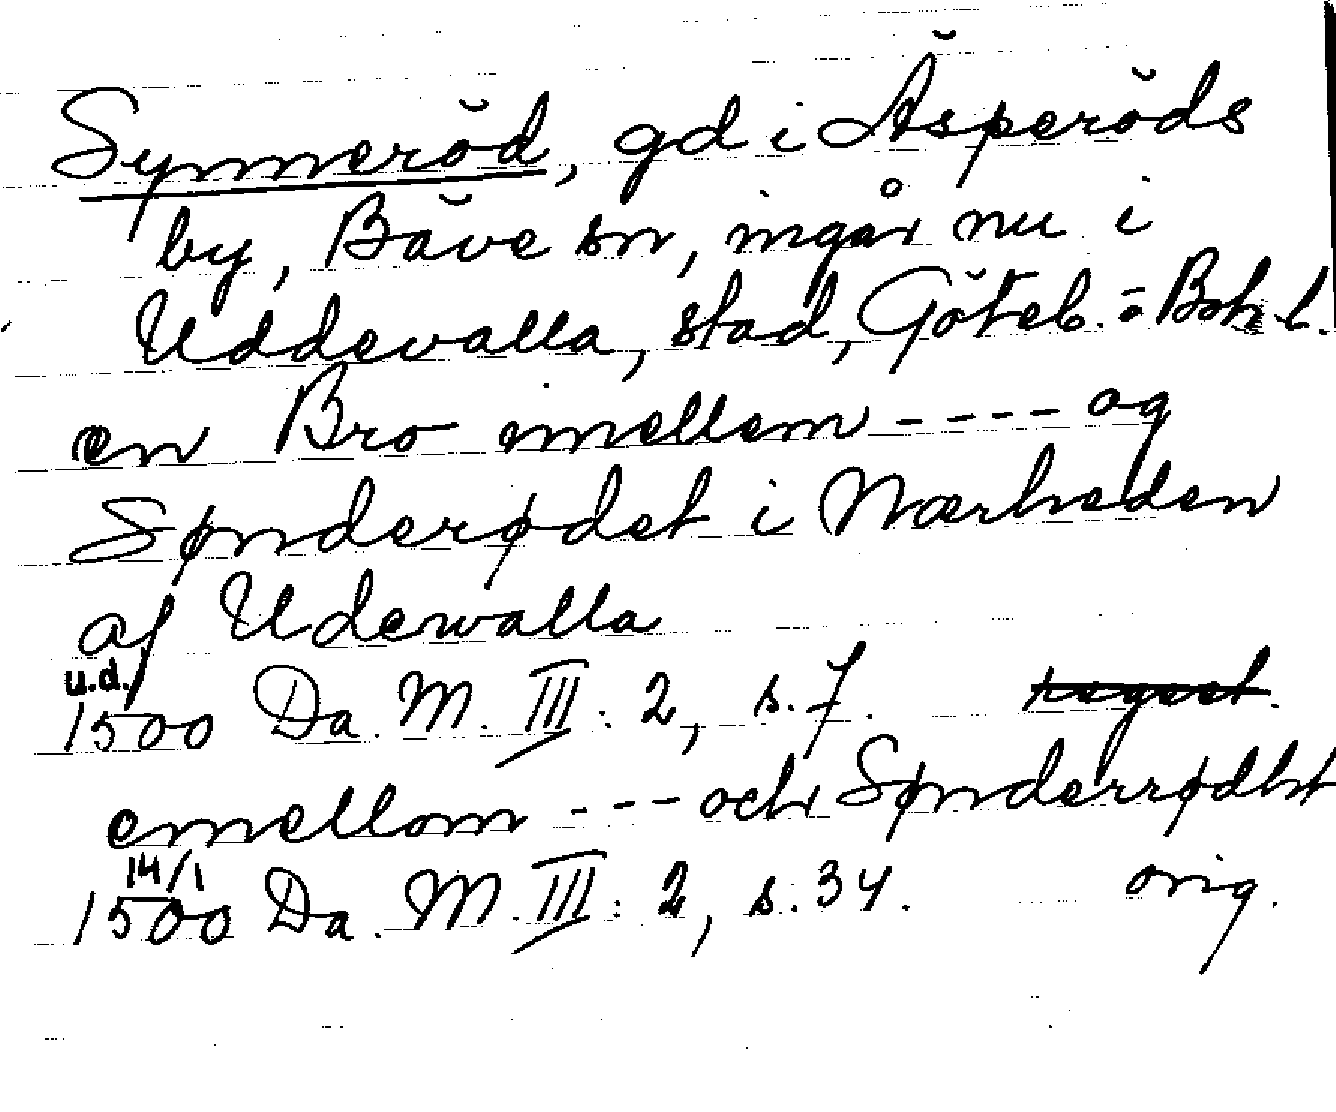 Synneröd, gd i Äsperöds
by, Bäve sn, ingår nu i
Uddevalla, stad, Göteb. o. Boh. l.
en Bro imellem ---- og
Sønderødet i Nærheden
af Udewalla
u.d.
1500 Da. M. III: 2, s. 7. regest.
emellom --- och Sønderrødht
14/1
1500 Da. M. III: 2, s. 34. orig.